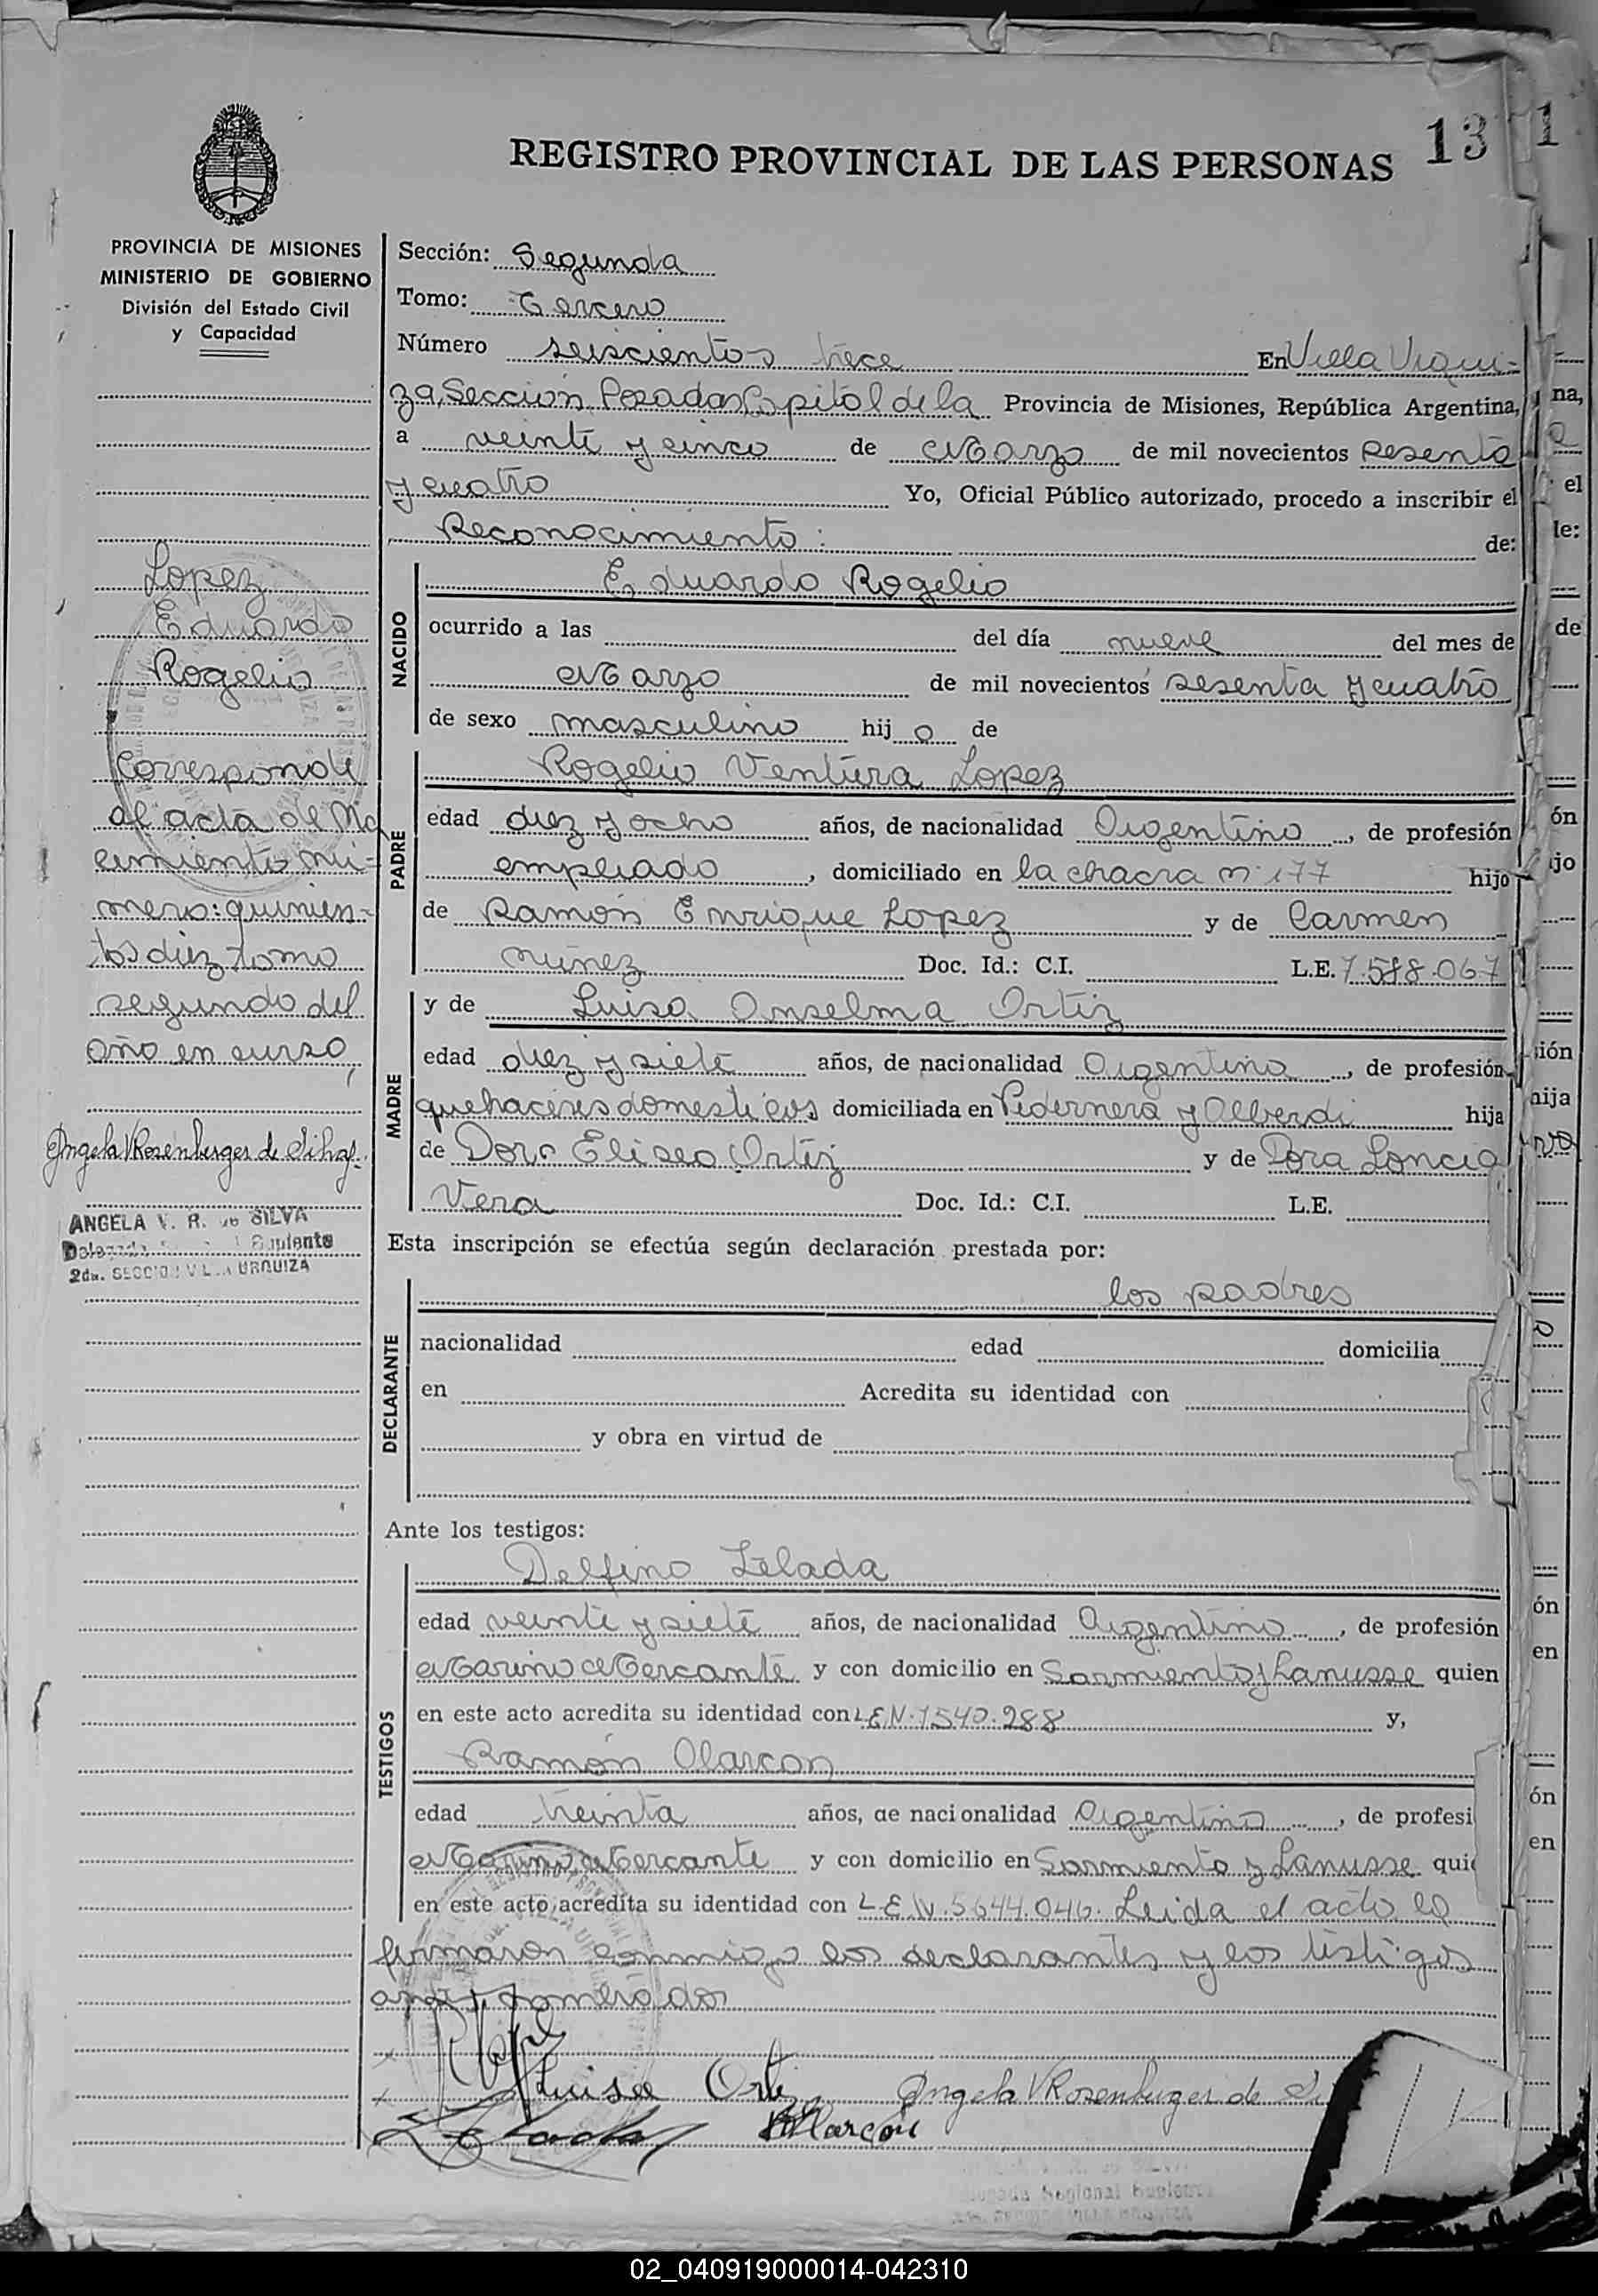 13
1
REGISTRO PROVINCIAL DE LAS PERSONAS
PROVINCIA DE MISIONES
MINISTERIO DE GOBIERNO
División del Estado Civil
y Capacidad
Sección: Segunda
Tomo: Tercero
Número seiscientos trece En Villa Urqui-
za, Sección Posadas Capital de la Provincia de Misiones, República Argentina,
a veinte y cinco de Marzo de mil novecientos sesenta
y cuatro Yo, Oficial Público autorizado, procedo a inscribir el
Reconocimiento: de:
Lopez
Eduardo
Rogelio
Corresponde
al acta de Na
cimiento nú-
mero: quinien-
tos diez tomo
segundo del
año en curso,
Angela V Rosenburger de Silva
ANGELA V. R. de SILVA
Suplente
2da. SECCION VILLA URQUIZA
NACIDO
Eduardo Rogelio
ocurrido a las del día nueve del mes de
Marzo de mil novecientos sesenta y cuatro
de sexo masculino hij o de
PADRE
Rogelio Ventura Lopez
edad diez y ocho años, de nacionalidad Argentino, de profesión
empleado, domiciliado en la chacra nº 177 hijo
de Ramón Enrique Lopez y de Carmen
Nuñez Doc. Id.: C.I. L.E. 7.588.067
MADRE
y de Luisa Anselma Ortiz
edad diez y siete años, de nacionalidad Argentina, de profesión
quehaceres domesticos domiciliada en Pedernera y Alberdi hija
de Doro Eliseo Ortiz y de Dora Loncia
Vera Doc. Id.: C.I. L.E.
Esta inscripción se efectúa según declaración prestada por:
DECLARANTE
los padres
nacionalidad edad domicilia
en Acredita su identidad con
y obra en virtud de
Ante los testigos:
TESTIGOS
Delfino Lelada
edad veinte y siete años, de nacionalidad Argentino, de profesión
Marino Mercante y con domicilio en Sarmiento y Lanusse quien
en este acto acredita su identidad con L.E.N. 7540.288 y,
Ramón Alarcon
edad treinta años, de nacionalidad Argentino, de profesi
Marino Mercante y con domicilio en Sarmiento y Lanusse qui
en este acto acredita su identidad con L.E.N. 5644.046. Leida el acta la
firmaron conmigo los declarantes y los testigos
nomerados
Luisa Ortiz Angela V Rosenburger de Si
Lelada RAlarcón
Regional Suplente
na,
el
le:
de
ón
jo
ión
hija
ón
en
ón
en
02_040919000014-042310